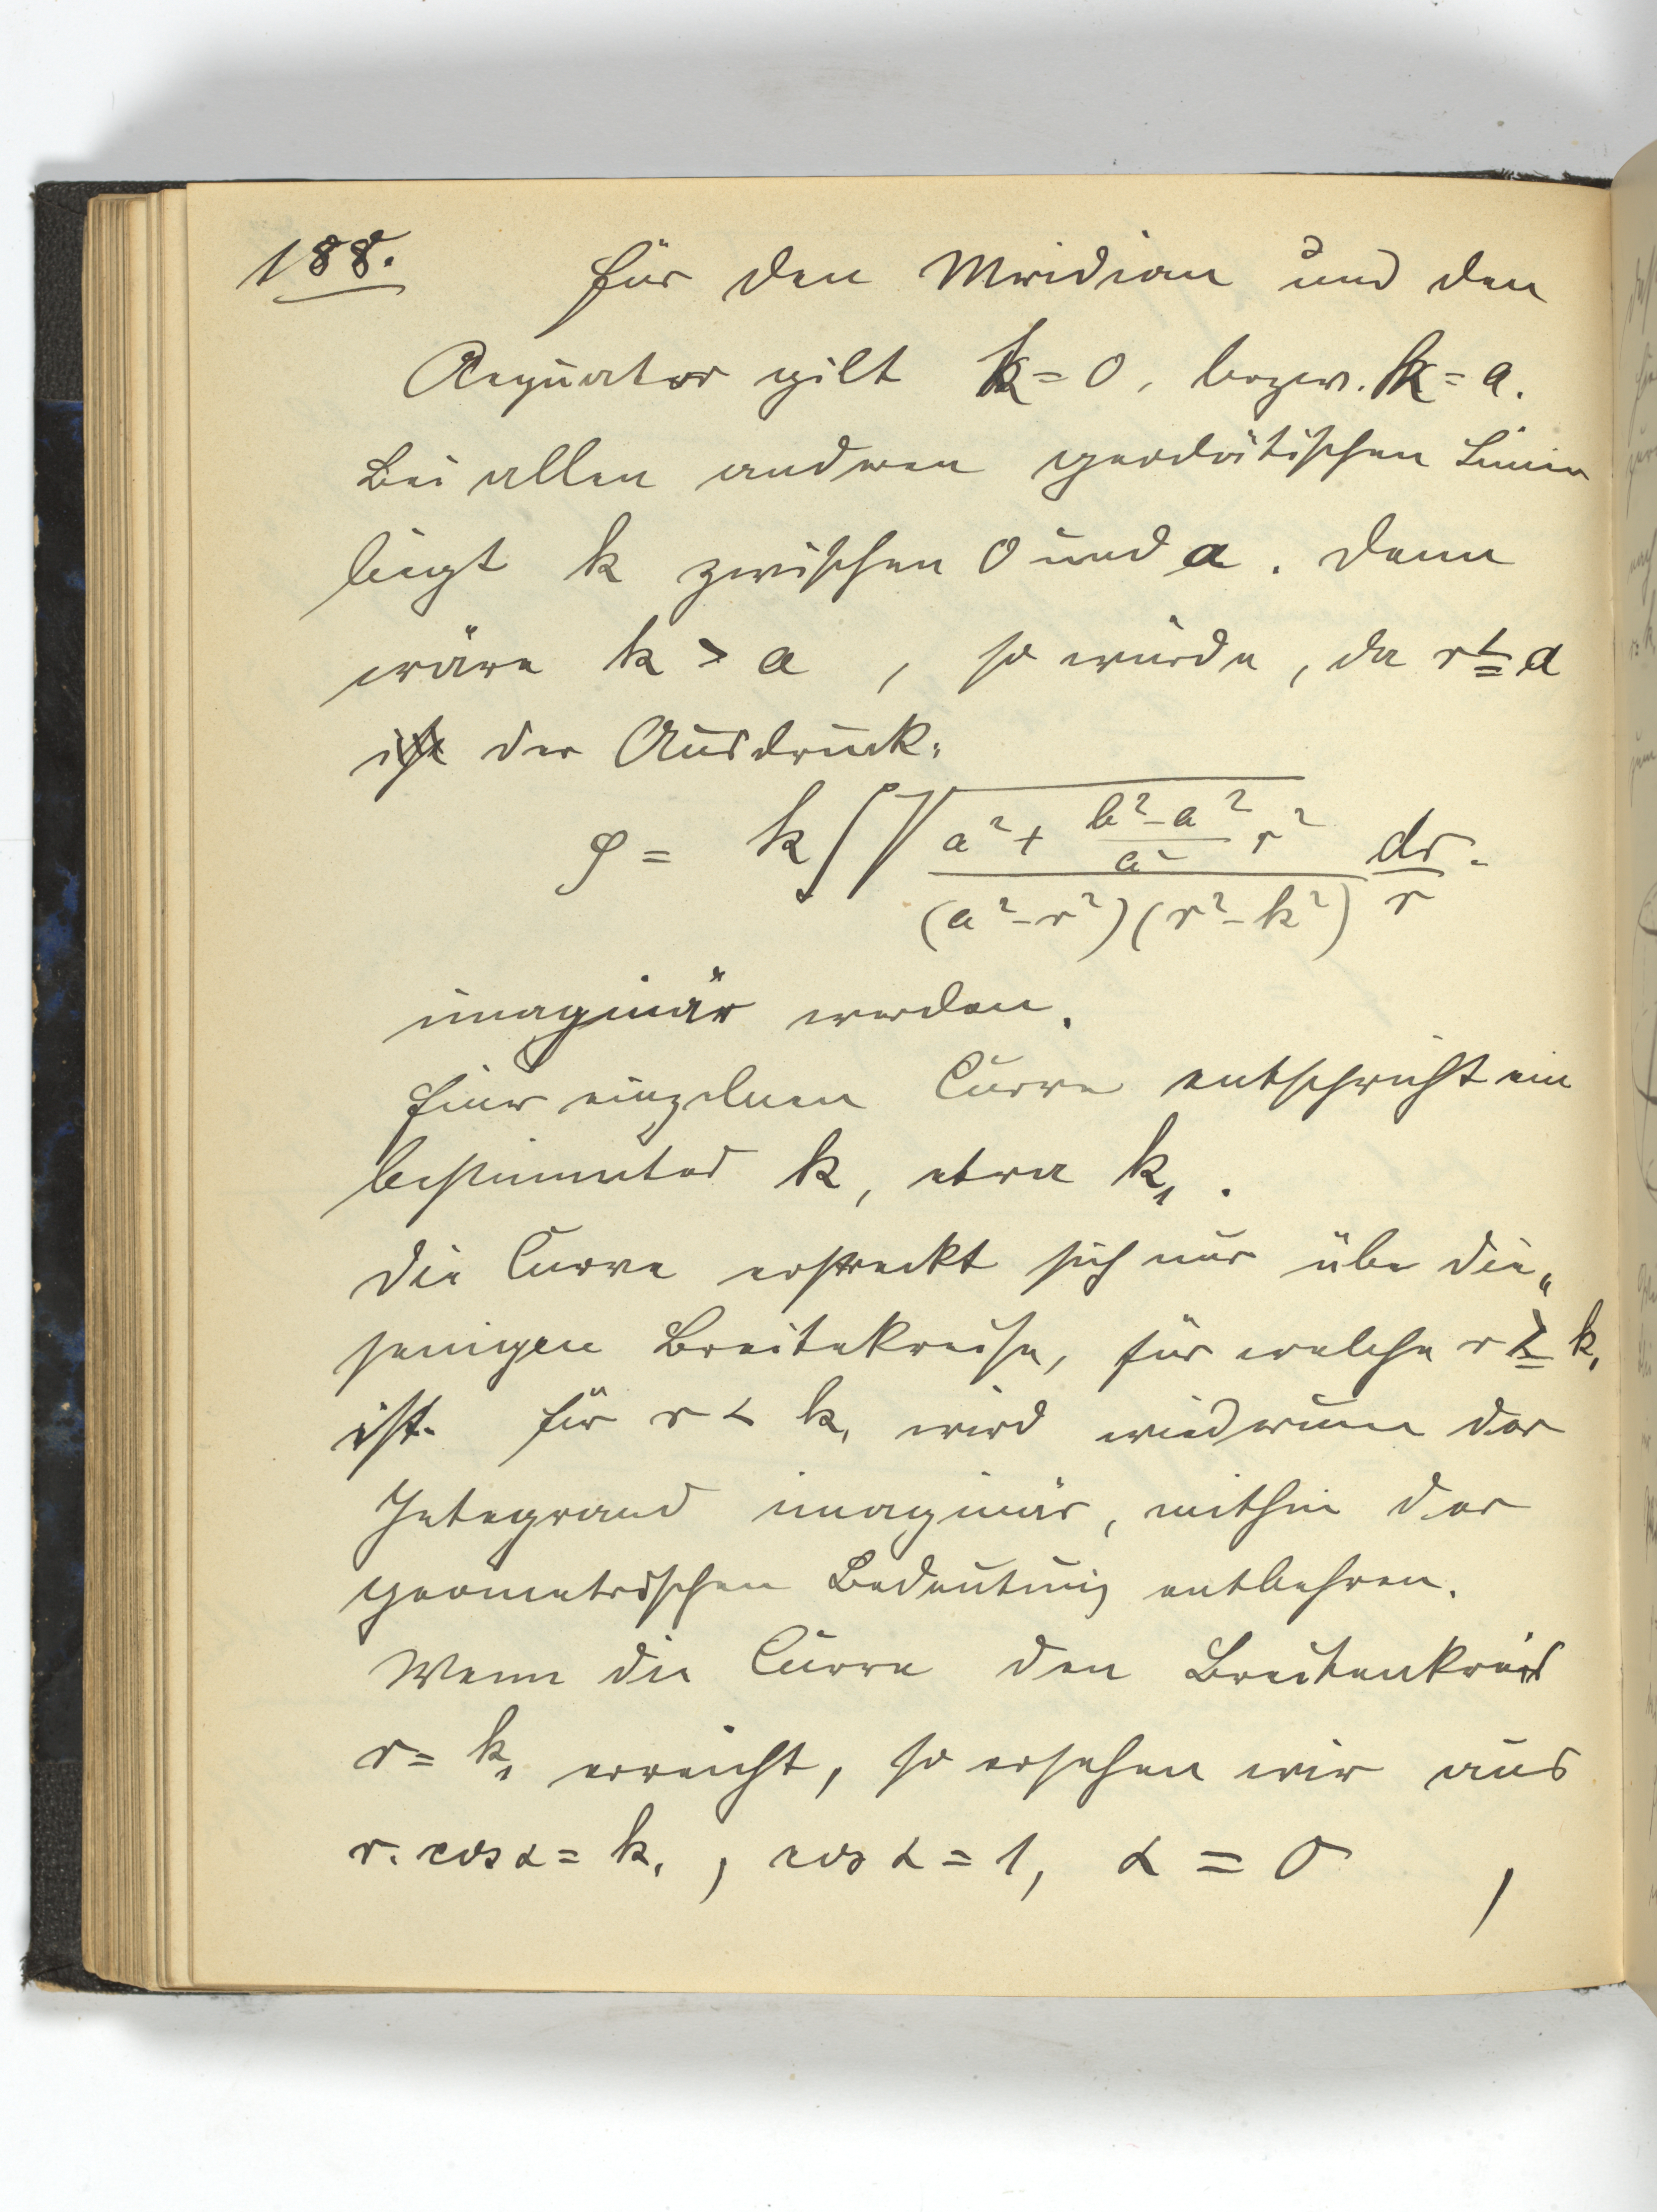 188. Für den Meridian und den
Aequator gilt k = 0, bezw. k = a.
Bei allen anderen geodätischen Linien
liegt k zwischen 0 und a. Denn
wäre k > a, so würde, da r ≦ a
ist der Ausdruck:
φ = k ∫ √( (a² + (b² - a²)/a² r²) / ((a² - r²)(r² - k²)) ) dr/r.
imaginär werden.
Einer einzelnen Curve entspricht ein
bestimmtes k, etwa k₁.
Die Curve erstreckt sich nur über die„
jenigen Breitekreise, für welche r ≧ k₁
ist. Für r < k₁ wird wiederum der
Integrand imaginär, mithin der
geometrischen Bedeutung entbehren.
Wenn die Curve den Breitenkreis
r = k₁ erreicht, so ersehen wir aus
r. cos α = k₁, cos α = 1, α = 0,